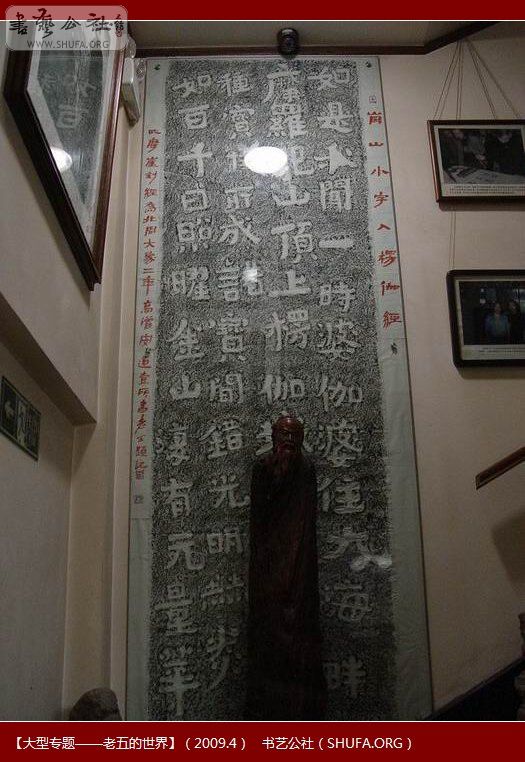 書艺公社
WWW.SHUFA.ORG
崗山小字入楞伽經
如是我聞一時婆伽婆住大海畔
摩羅耶山頂上楞伽
種寶性所成諸寶間錯光明赫炎
如百千日照曜金山復有无量華
此摩崖刻經為北周大象二年
【大型专题——老五的世界】（2009.4） 书艺公社（SHUFA.ORG）